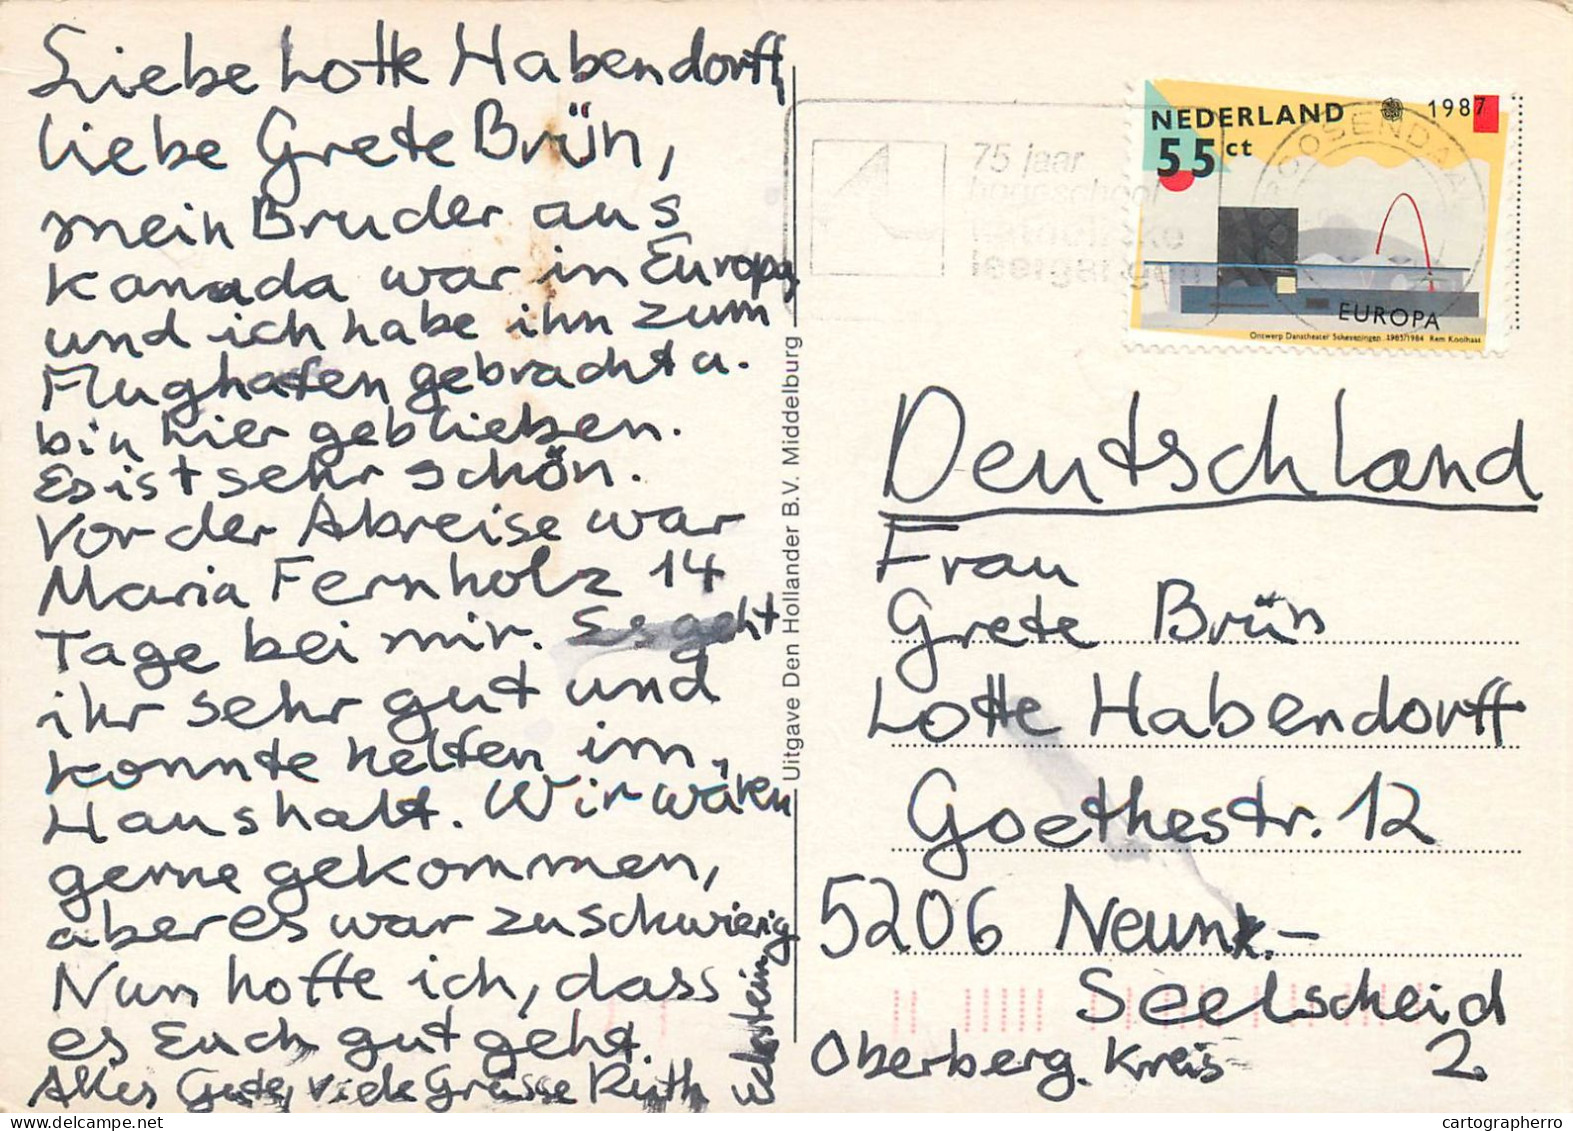 Liebe Lotte Habendorff,
liebe Grete Brün,
mein Bruder aus
Kanada war in Europa,
und ich habe ihn zum
Flughafen gebracht u.
bin hier geblieben.
Es ist sehr schön.
Vor der Abreise war
Maria Fernholz 14
Tage bei mir. Es geht
ihr sehr gut und
konnte helfen im
Haushalt. Wir wären
gerne gekommen,
aber es war zu schwierig
Nun hoffe ich, dass
es Euch gut geht.
Alles Gute, viele Grüsse Ruth
Uitgave Den Hollander B.V. Middelburg
75 jaar
hogeschool
katholieke
leergangen
ROOSENDAAL
NEDERLAND 1987
55 ct
EUROPA
Ontwerp Danstheater Scheveningen 1983/1984 Rem Koolhaas
Deutschland
Frau
Grete Brün
Lotte Habendorff
Goethestr. 12
5206 Neunk.-
Seelscheid
2.
Oberberg. Kreis
cartographerro